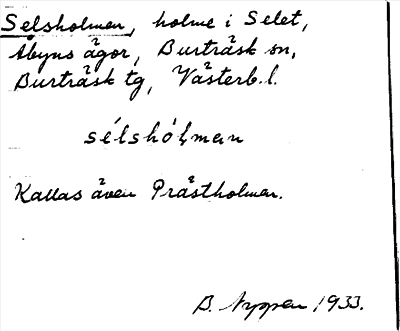 Selsholmen, holme i Selet,
Åbyns ägor, Burträsk sn,
Burträsk tg, Västerb. l.
sélshólman
Kallas även Prästholmen.
B. Nyppen 1933.